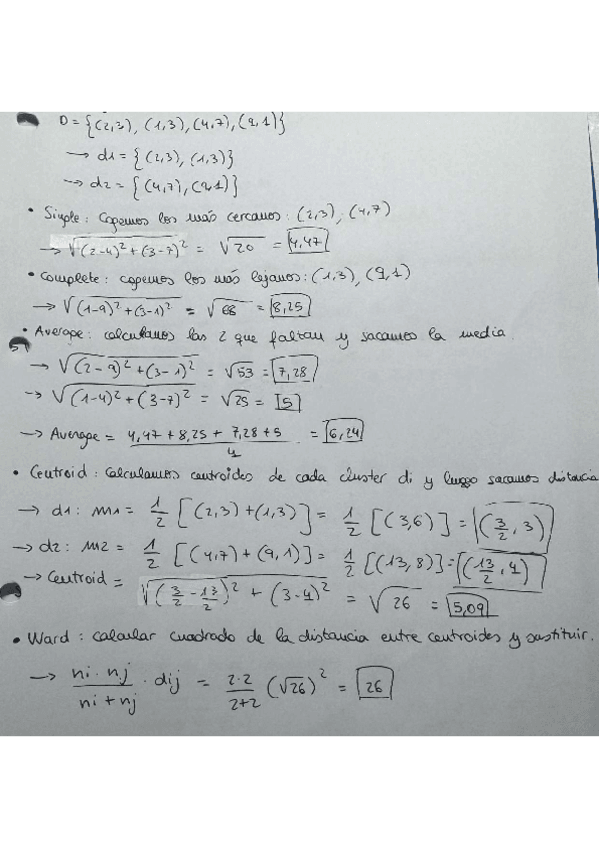 D = {(2,3), (1,3), (4,7), (9,1)}
→ d1 = {(2,3), (1,3)}
→ d2 = {(4,7), (9,1)}
• Simple: Cogemos los más cercanos: (2,3), (4,7)
→ √(2-4)² + (3-7)² = √20 = 4,47
• Complete: cogemos los más lejanos: (1,3), (9,1)
→ √(1-9)² + (3-1)² = √68 = 8,25
• Average: calculamos las 2 que faltan y sacamos la media.
→ √(2-9)² + (3-1)² = √53 = 7,28
→ √(1-4)² + (3-7)² = √25 = 5
→ Average = (4,47 + 8,25 + 7,28 + 5)/4 = 6,24
• Centroid: Calculamos centroides de cada cluster di y luego sacamos distancia
→ d1: m1 = 1/2 [(2,3) + (1,3)] = 1/2 [(3,6)] = (3/2, 3)
→ d2: m2 = 1/2 [(4,7) + (9,1)] = 1/2 [(13,8)] = (13/2, 4)
→ Centroid = √(3/2 - 13/2)² + (3-4)² = √26 = 5,09
• Ward: calcular cuadrado de la distancia entre centroides y sustituir.
→ ni · nj / ni + nj · dij = 2·2 / 2+2 (√26)² = 26